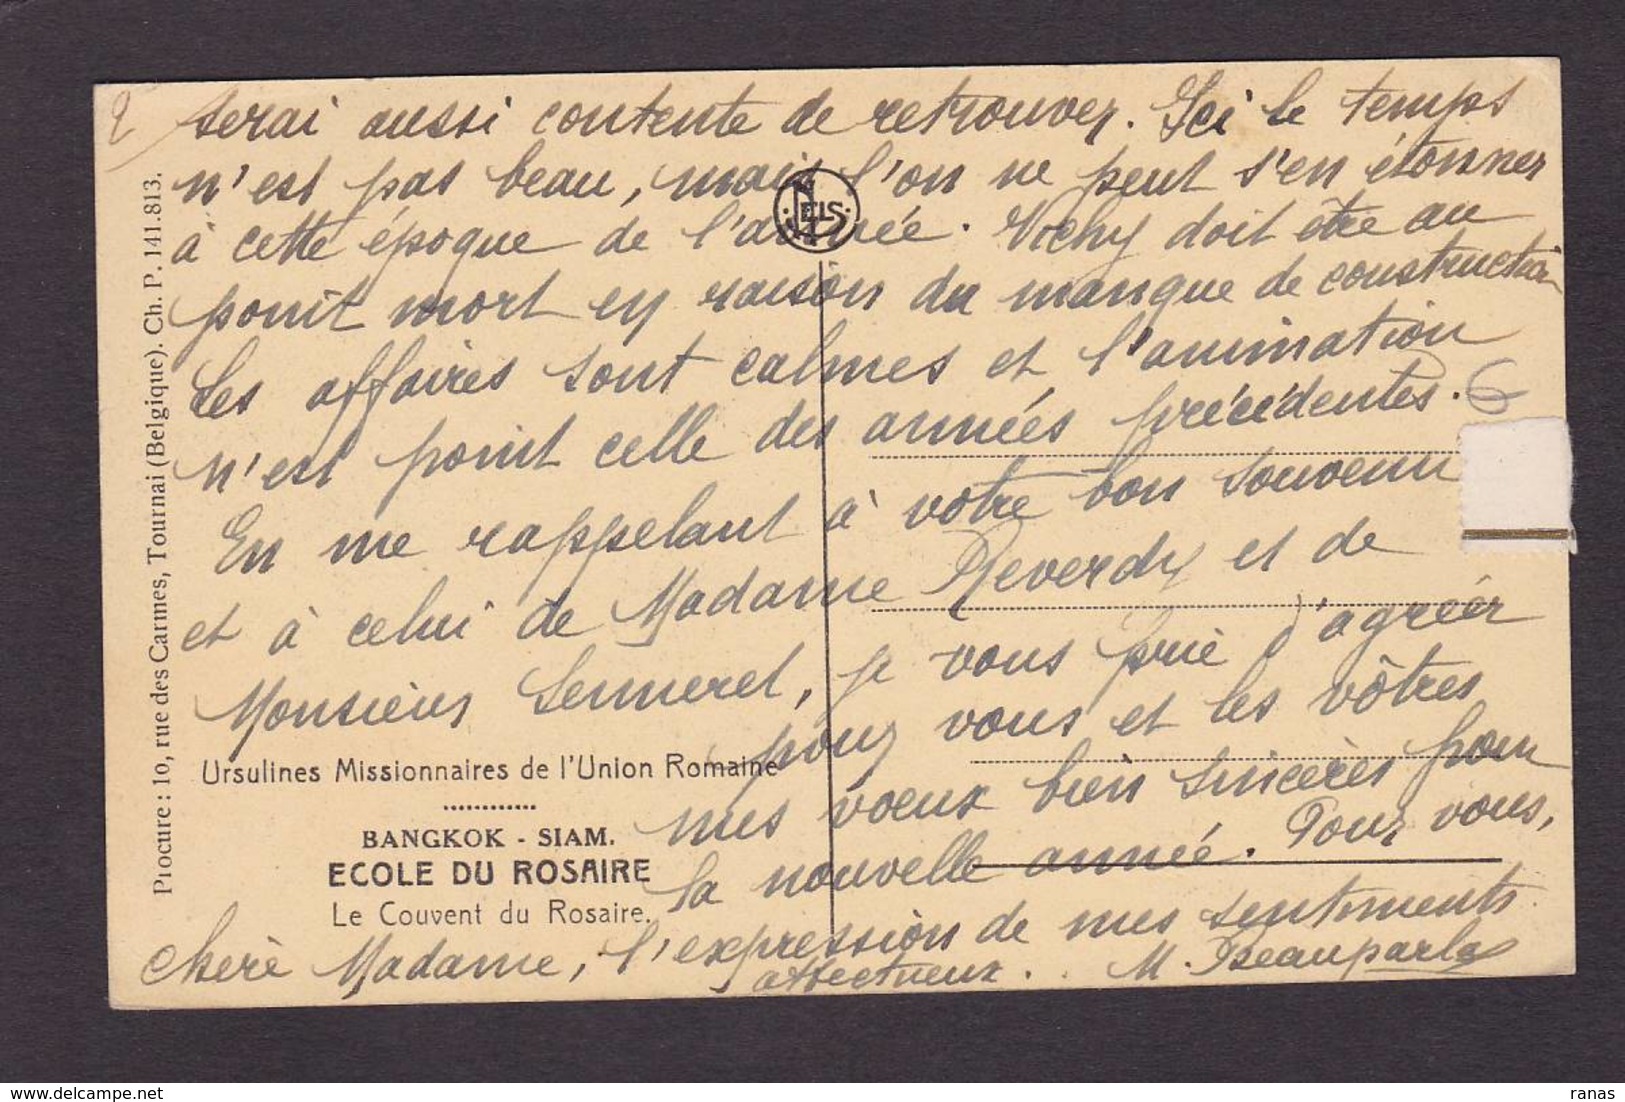 2
serai aussi contente de retrouver. Ici le temps
n'est pas beau, mais l'on ne peut s'en étonner
à cette époque de l'année. Vichy doit être au
point mort en raison du manque de construction
Les affaires sont calmes et l'animation
n'est point celle des années précédentes.
6
En me rappelant à votre bon souvenir
et à celui de Madame Reverdy et de
Monsieur Lemeret, je vous prie d'agréer
pour vous et les vôtres
mes voeux bien sincères pour
la nouvelle année. Pour vous,
chère Madame, l'expression de mes sentiments
affectueux. . M. Beauparla
NELS
Procure : 10, rue des Carmes, Tournai (Belgique). Ch. P. 141.813.
Ursulines Missionnaires de l'Union Romaine
BANGKOK - SIAM.
ECOLE DU ROSAIRE
Le Couvent du Rosaire.
ranas